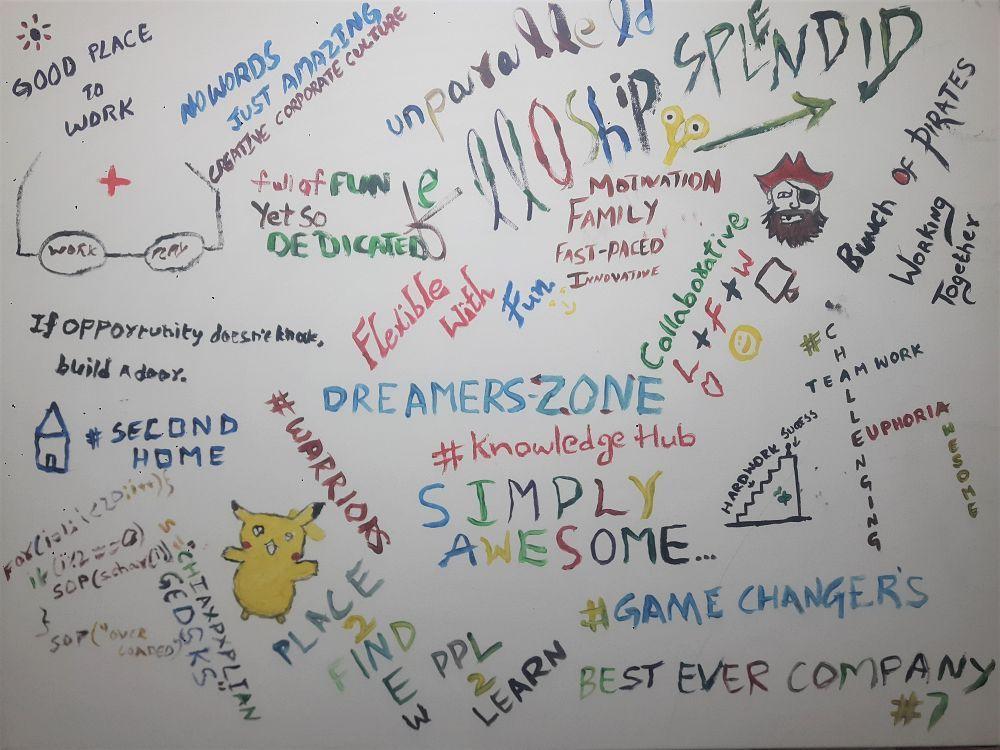 GOOD PLACE
TO
WORK
NO WORDS
JUST AMAZING
CREATIVE CORPORATE CULTURE
unparalleld
SPLENDID
lloship
full of FUN
Yet So
DEDICATED
MOTIVATION
FAMILY
FAST-PACED
INNOVATIVE
BUNCH OF PIRATES
WORKING
Together
WORK
PLAY
Flexible
With
Fun
Collaborative
If opportunity doesn't knock,
build a door.
DREAMERS-ZONE
#Knowledge Hub
SIMPLY
AWESOME...
#SECOND
HOME
#WARRIORS
#CHALLENGING
TEAM WORK
EUPHORIA
AWESOME
HARDWORK SUCESS
SOP(
}
SOP("OVER
LOADED
PLACE
2
FIND
PPL
2
LEARN
#GAME CHANGER'S
BEST EVER COMPANY
#7